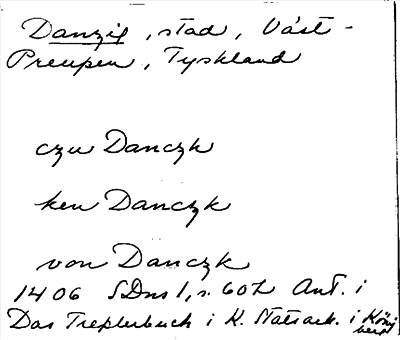 Danzig, stad, Väst-
Preupen, Tyskland
czu Danczk
ken Danczk
von Danczk
1406 SDns 1, s. 602 Ant. i
Das Treplerbuch i K. Statsark. i Königsberg